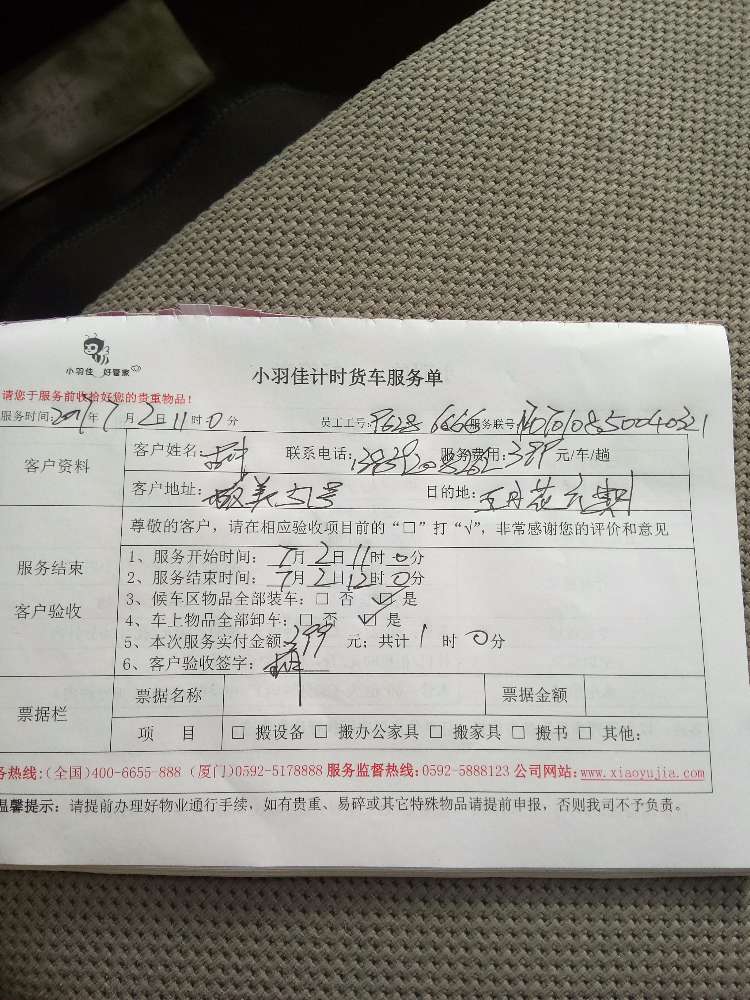 小羽佳 好管家
小羽佳计时货车服务单
请您于服务前收拾好您的贵重物品!
服务时间:2017年7月2日11时0分 员工工号: 6666 服务联号:
客户资料
客户姓名: 联系电话: 服务费用:399元/车/趟
客户地址: 目的地:
尊敬的客户,请在相应验收项目前的“□”打“√”,非常感谢您的评价和意见
服务结束
客户验收
1、服务开始时间:7月2日11时0分
2、服务结束时间:7月2日12时0分
3、候车区物品全部装车:□ 否 ☑ 是
4、车上物品全部卸车:□ 否 ☑ 是
5、本次服务实付金额:399元;共计1时0分
6、客户验收签字:
票据栏
票据名称 票据金额
项 目 □ 搬设备 □ 搬办公家具 □ 搬家具 □ 搬书 □ 其他:
务热线:(全国)400-6655-888 (厦门)0592-5178888 服务监督热线:0592-5888123 公司网站:www.xiaoyujia.com
温馨提示:请提前办理好物业通行手续,如有贵重、易碎或其它特殊物品请提前申报,否则我司不予负责。